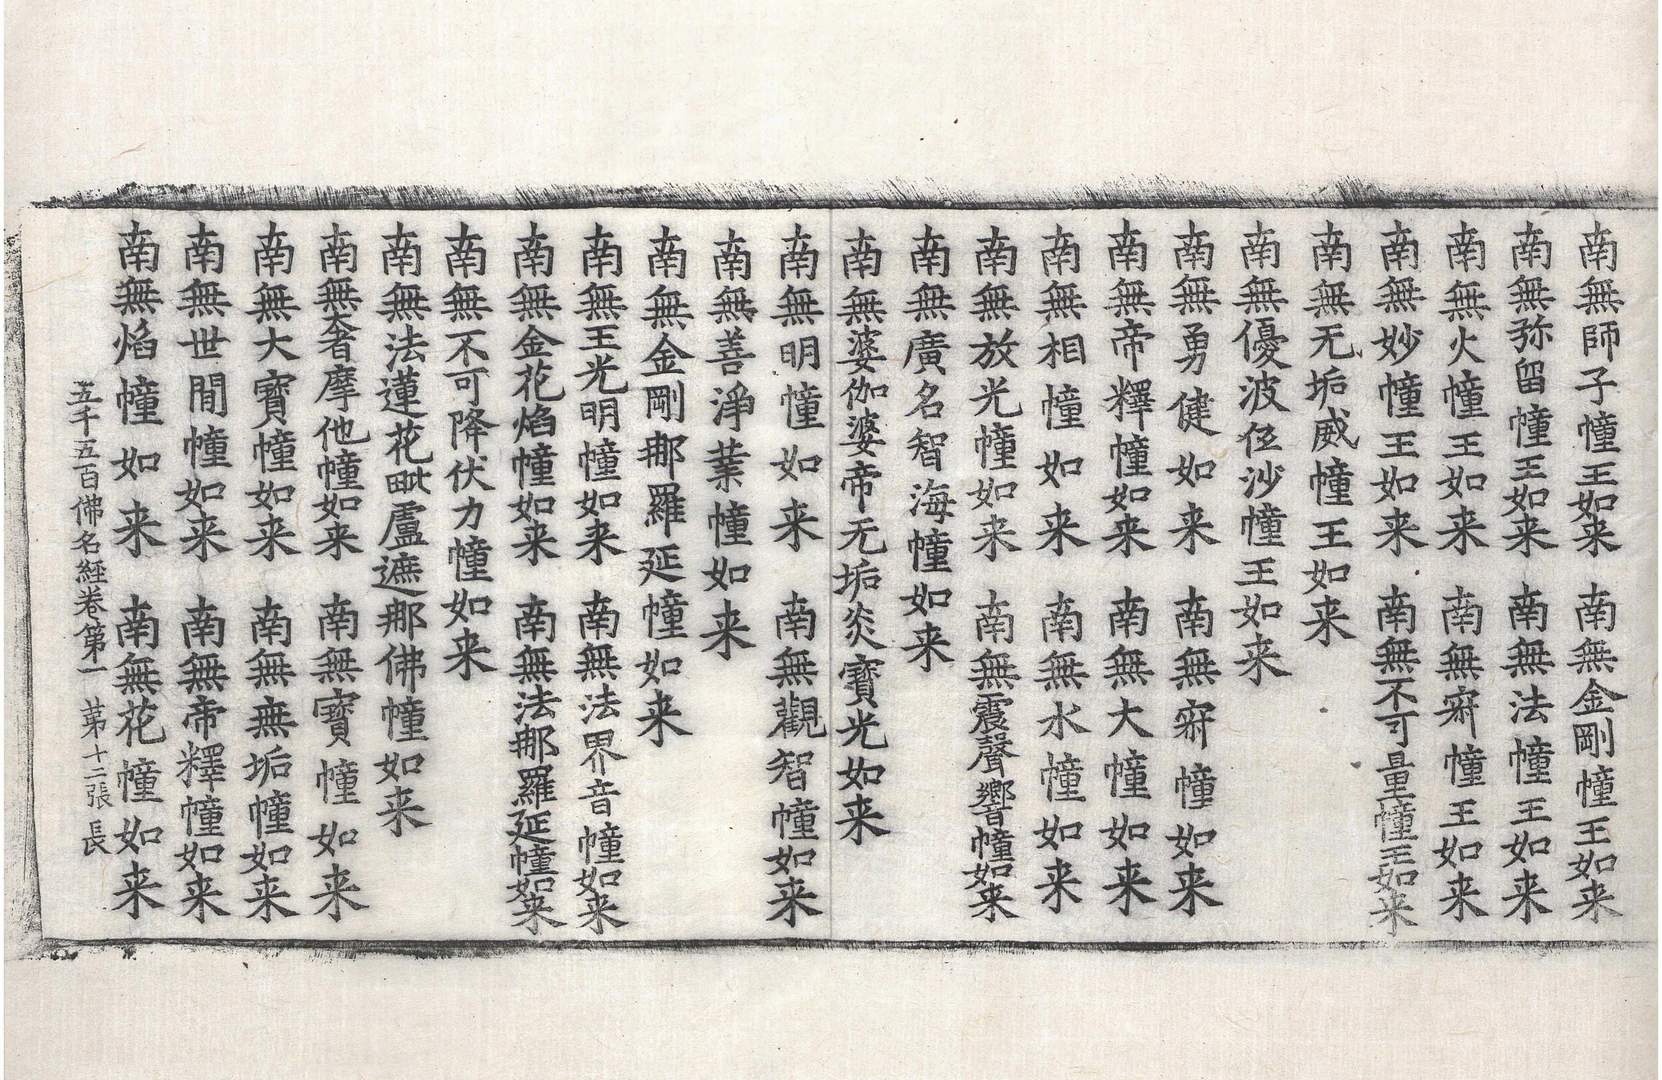 南無師子幢王如来　南無金剛幢王如来
南無弥留幢王如来　南無法幢王如来
南無火幢王如来　南無寂幢王如来
南無妙幢王如来　南無不可量幢王如来
南無无垢威幢王如来
南無優波伍沙幢王如来
南無勇健如来　南無寂幢如来
南無帝釋幢如来　南無大幢如来
南無相幢如来　南無水幢如来
南無放光幢如来　南無震聲響幢如来
南無廣名智海幢如来
南無婆伽婆帝无垢炎寶光如来
南無明幢如来　南無觀智幢如来
南無善淨業幢如来
南無金剛那羅延幢如来
南無王光明幢如来　南無法界音幢如来
南無金花焰幢如来　南無法那羅延幢如来
南無不可降伏力幢如来
南無法蓮花毗盧遮那佛幢如来
南無奢摩他幢如来　南無寶幢如来
南無大寶幢如来　南無無垢幢如来
南無世間幢如来　南無帝釋幢如来
南無焰幢如来　南無花幢如来
五千五百佛名經卷第一　第十二張　長